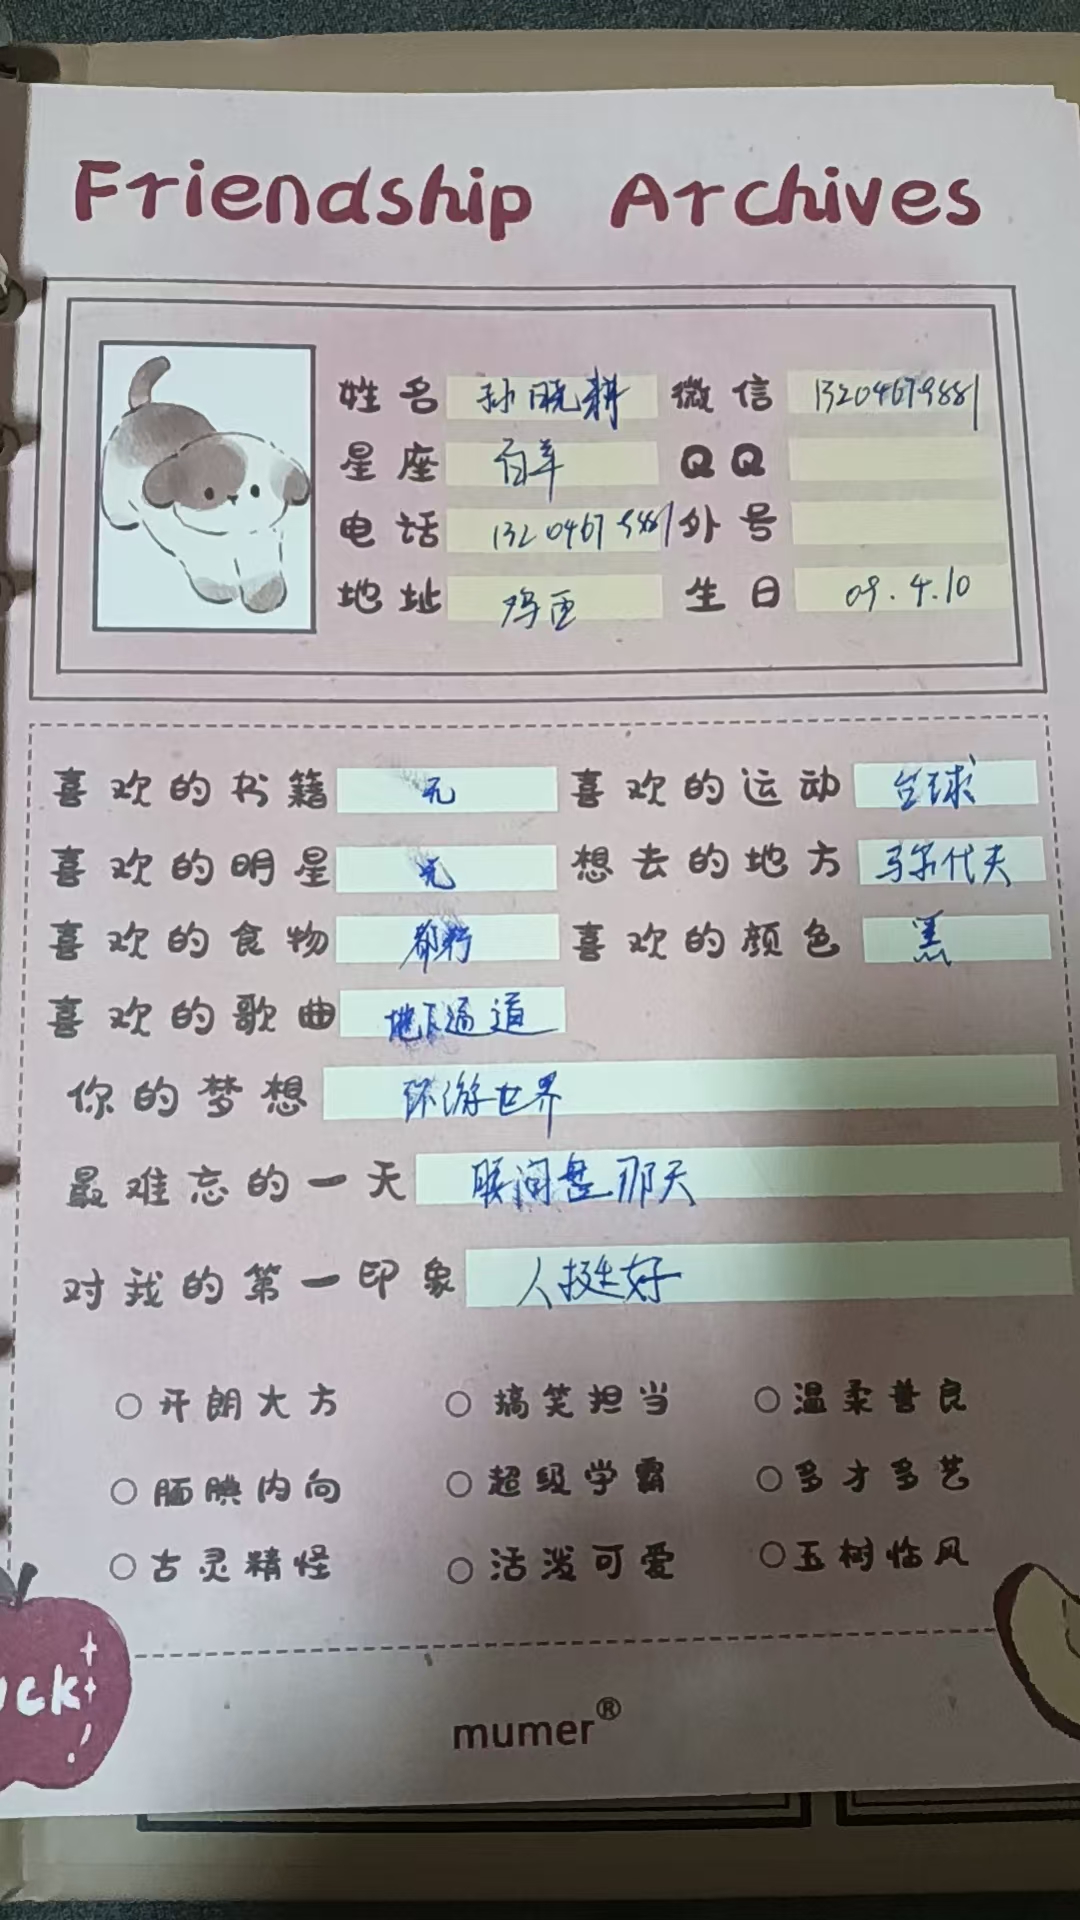 Friendship Archives
姓名 孙晓耕 微信 13204679881
星座 白羊 QQ
电话 13204679881 外号
地址 鸡西 生日 09.4.10
喜欢的书籍 无 喜欢的运动 台球
喜欢的明星 无 想去的地方 马尔代夫
喜欢的食物 都行 喜欢的颜色 黑
喜欢的歌曲 地下通道
你的梦想 环游世界
最难忘的一天 那天
对我的第一印象 人挺好
开朗大方 搞笑担当 温柔善良
腼腆内向 超级学霸 多才多艺
古灵精怪 活泼可爱 玉树临风
uck
mumer®